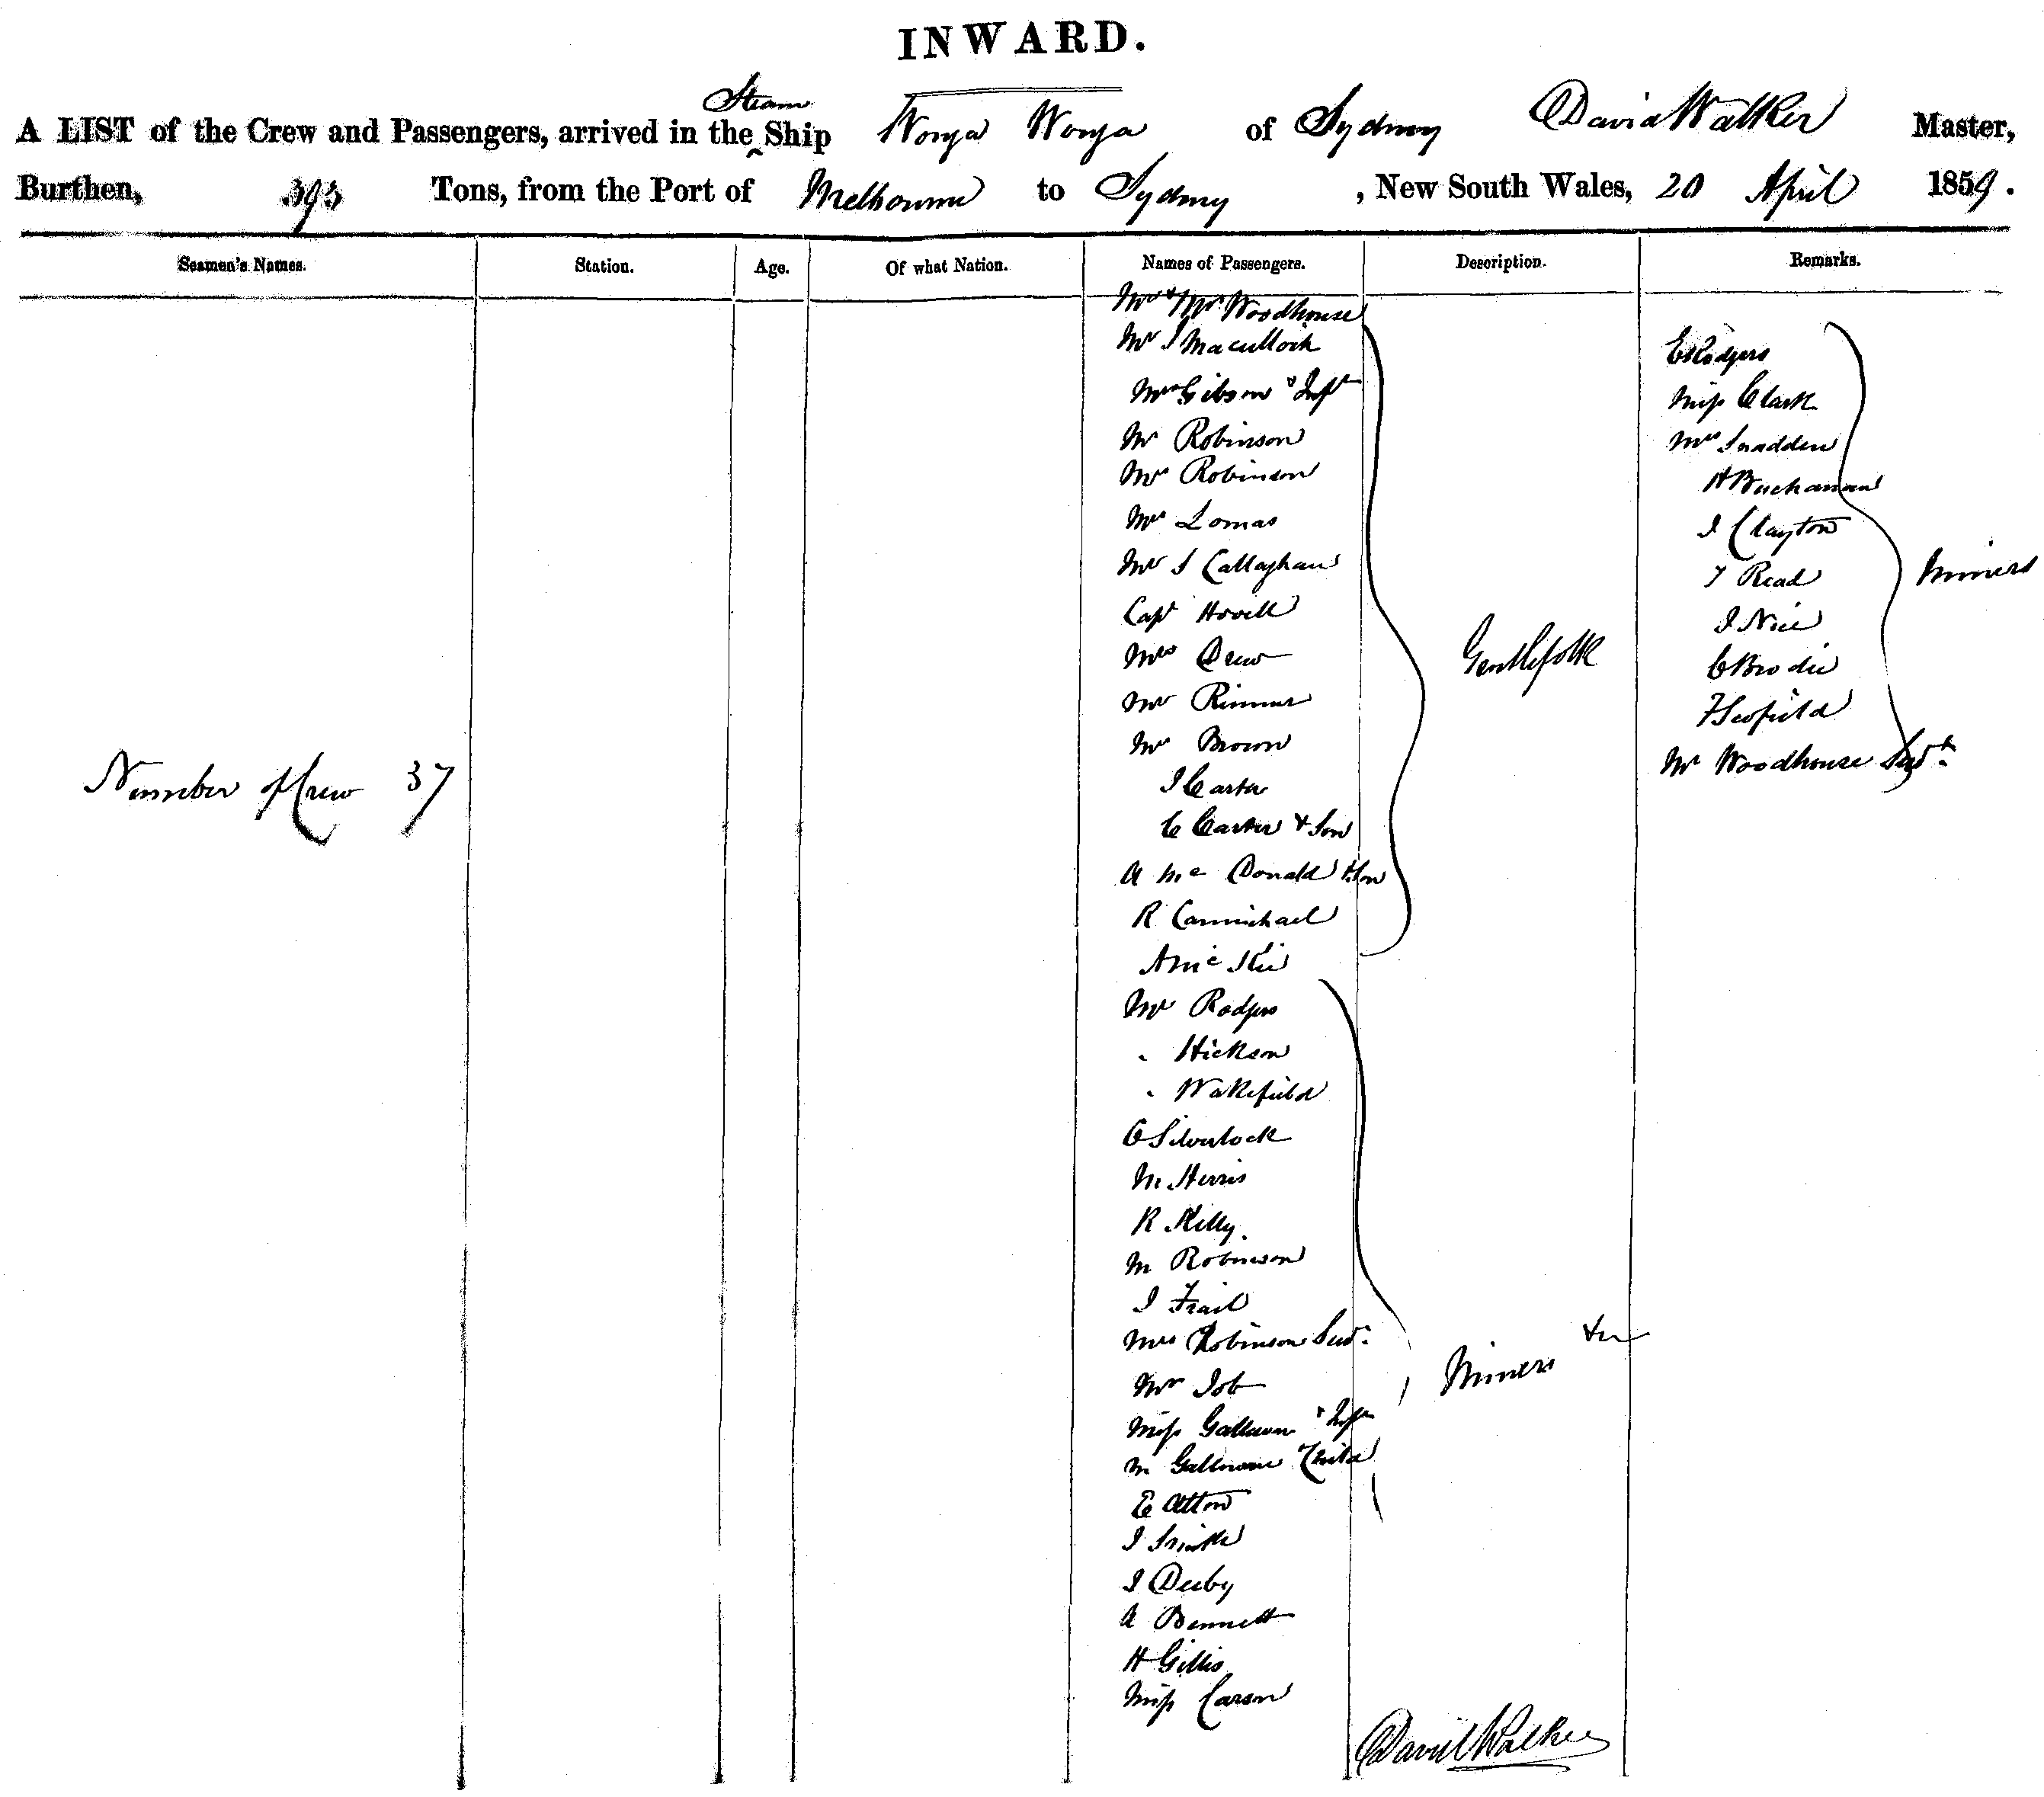 INWARD.
A LIST of the Crew and Passengers, arrived in the Steam Ship Wonga Wonga of Sydney David Walker Master,
Burthen, 393 Tons, from the Port of Melbourne to Sydney, New South Wales, 20 April 1859.
Seamen's Names. Station. Age. Of what Nation. Names of Passengers. Description. Remarks.
Mr & Mrs Woodhouse
Mr J Maculloch
Mrs Gibson & Inft
Mr Robinson
Mrs Robinson
Mrs Lomas
Mr J Callaghan
Capt Hovell
Mrs Drew
Mr Rimmer
Mr Brown
J Carter
C Carter & Son
A Mc Donald & Son
R Carmichael
A Mc Kie
Gentlefolk
Mr Rodgers
" Hickson
" Wakefield
C Silverlock
M Herris
R Kelly
M Robinson
J Frail
Mrs Robinson Servt
Mr Job
Miss Galloway & Inft
M Galloway Child
E Atton
J Smith
J Derby
A Bennett
H Gillis
Miss Carson
Miners &c
E Rodgers
Miss Clark
Mrs Snadden
H Buchanan
J Clayton
T Read
J Nice
C Brodie
F Scofield
Mr Woodhouse Servt
Miners
Number of Crew 37
David Walker